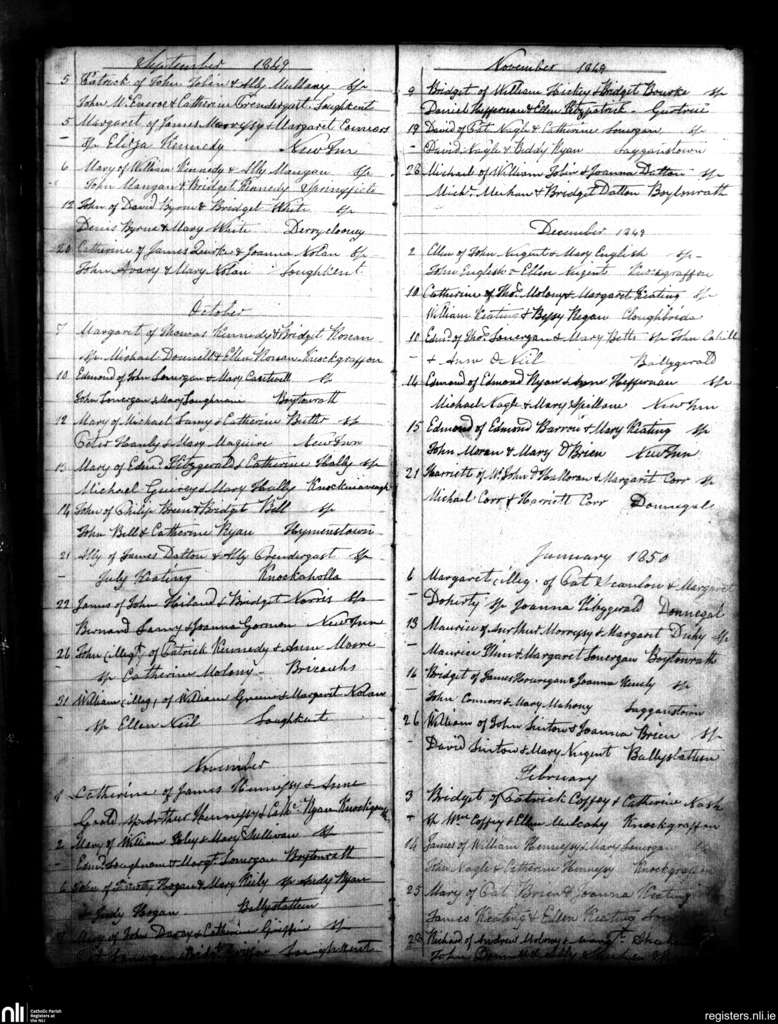 September 1849
5 Patrick of John Tobin & Ally Mullany Sp
John McEneroe & Catherine Prendergast Loughkent
5 Margaret of James Morrissy & Margaret Connors
– Sp Eliza Kennedy New Inn
6 Mary of William Kennedy & Ally Mangan Sp
John Mangan & Bridget Kennedy Springfield
12 John of David Byrne & Bridget White Sp
Denis Byrne & Mary White Derryclooney
20 Catherine of James Quirke & Joanna Nolan Sp
John Avary & Mary Nolan Loughkent
October
7 Margaret of Thomas Kennedy & Bridget Horan
– Sp Michael Donnell & Ellen Horan Knockgraffon
10 Edmond of John Lonergan & Mary Cantwell Sp
John Lonergan & Mary Loughnane Boytonrath
12 Mary of Michael Lamy & Catherine Butler Sp
Peter Hanly & Mary Maguire New Inn
Mary of Edmd. Fitzgerald & Catherine Hally Sp
Michael Guirey & Mary Hally
14 John of Philip Breen & Bridget Bell Sp
John Bell & Catherine Ryan Hymenstown
21 Ally of James Dalton & Ally Prendergast Sp
– July Keating Knockaholla
22 James of John Hiland & Bridget Norris Sp
Bernard Lamy & Joanna Gorman New Inn
26 John (illegt.) of Patrick Kennedy & Anne Moore
– Sp Catherine Molony
31 William (illeg) of William Greene & Margaret Nolan
Sp Ellen Neil Loughkent
November
1 Catherine of James Hennessy & Anne
Goold Sp Arthur Hennessy & Cathe. Ryan Knockgraffon
2 Mary of William Foley & Mary Sullivan Sp
– Edmd. Loughnane & Margt. Lonergan Boytonrath
6 John of Timothy Hogan & Mary Reily Sp Andy Ryan
& Judy Hogan Ballyslatteen
Mary of John Davey & Catherine Griffin Sp
Lonergan & Bridgt. Griffin Loughkent
November 1849
9 Bridget of William Hickey & Bridget Bourke Sp
Daniel Heffernan & Ellen Fitzpatrick
19 David of Pat Nagle & Catherine Lonergan Sp
– David Nagle & Biddy Ryan Lagganstown
26 Michael of William Tobin & Joanna Dalton Sp
Michl. Meehan & Bridget Dalton Boytonrath
December 1849
2 Ellen of John Nugent & Mary English Sp
– John English & Ellen Nugent Knockgraffon
10 Catherine of Thos. Molony & Margaret Keating Sp
William Keating & Bessy Hegan Cloughbrida
10 Edmd. of Thos. Lonergan & Mary Betts Sp John Cahill
– & Anne O Neil Ballygerald
14 Edmond of Edmond Ryan & Anne Heffernan Sp
Michael Nagle & Mary Spillane New Inn
15 Edmond of Edmond Barron & Mary Keating Sp
John Moran & Mary O'Brien New Inn
21 Harriett of Mr. John Thos Moran & Margaret Corr Sp
Michael Corr & Harriett Corr Donnegal
January 1850
6 Margaret illeg. of Pat Scanlon & Margaret
– Doherty Sp Joanna Fitzgerald Donnegal
13 Maurice of Arthur Morrissy & Margaret Duhy Sp
– Maurice & Margaret Lonergan Boytonrath
16 Bridget of James Hourigan & Joanna Sp
– John Connors & Mary Mahony Lagganstown
26 William of John Sinton & Joanna Brien Sp
– David Sinton & Mary Nugent Ballyslatteen
February
3 Bridget of Patrick Coffey & Catherine Nash
– Wm. Coffey & Ellen Mulcahy Knockgraffon
14 James of William Hennessy & Mary Lonergan
John Nagle & Catherine Hennessy Knockgraffon
25 Mary of Pat Brien & Joanna Keating
James Keating & Ellen Keating
Richard of Andrew Molony & Margt.
John
nli
Catholic Parish
Registers at
the NLI
registers.nli.ie